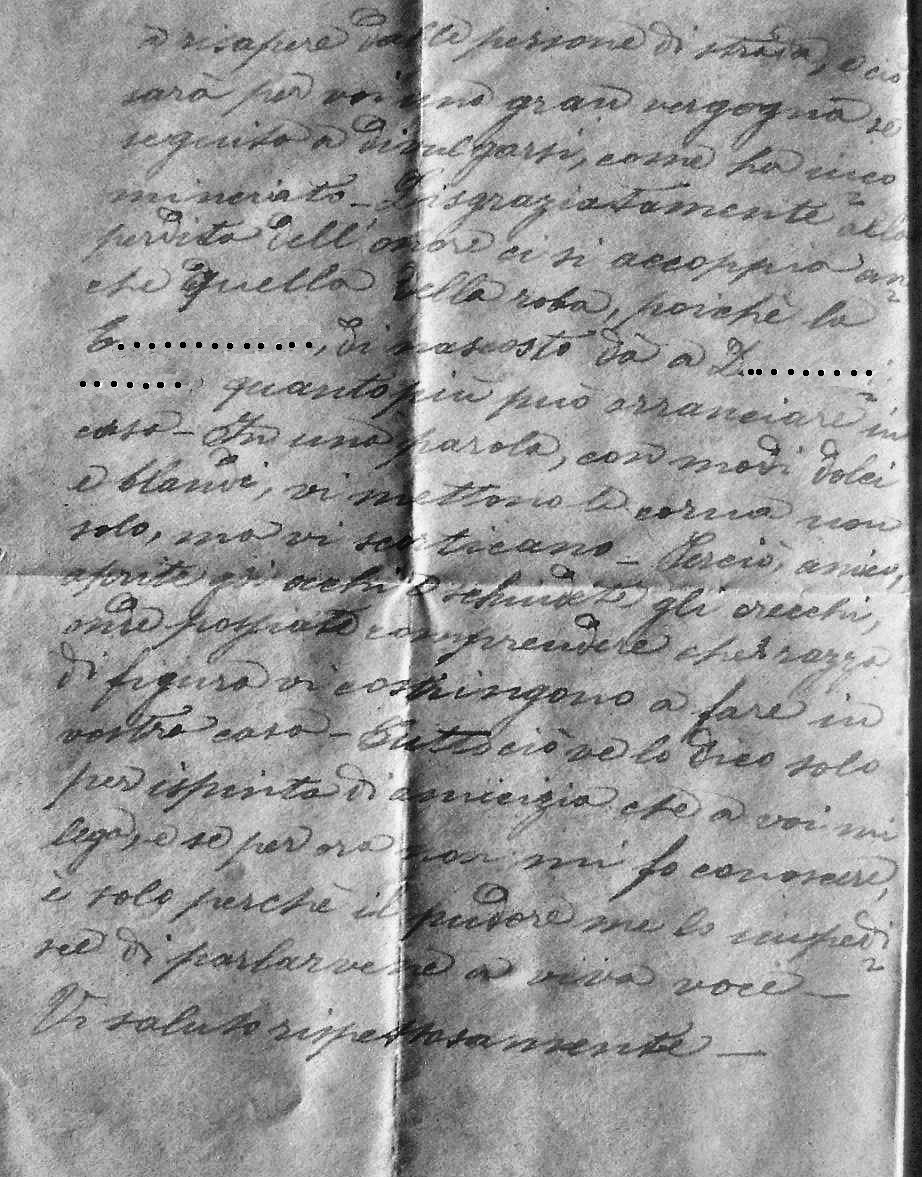 a risapere dalle persone di strada, e ciò
sarà per voi una gran vergogna se
seguita a divulgarsi, come ha inco
minciato - Disgraziatamente alla
perdita dell'onore ci si accoppia an
che quella della roba, poichè la
C............., di nascosto dà a D.........
....... quanto più può arranciare in
casa - In una parola, con modi dolci
e blandi, vi mettono le corna non
solo, ma vi scorticano - Perciò, amico,
aprite gli occhi e schiudete gli orecchi,
onde possiate comprendere che razza
di figura vi costringono a fare in
vostra casa - Tutto ciò ve lo dico solo
per ispinta di amicizia che a voi mi
lega, e se per ora non mi fo conoscere,
è solo perchè il pudore me lo impedi
sce di parlarvene a viva voce -
Vi saluto rispettosamente -